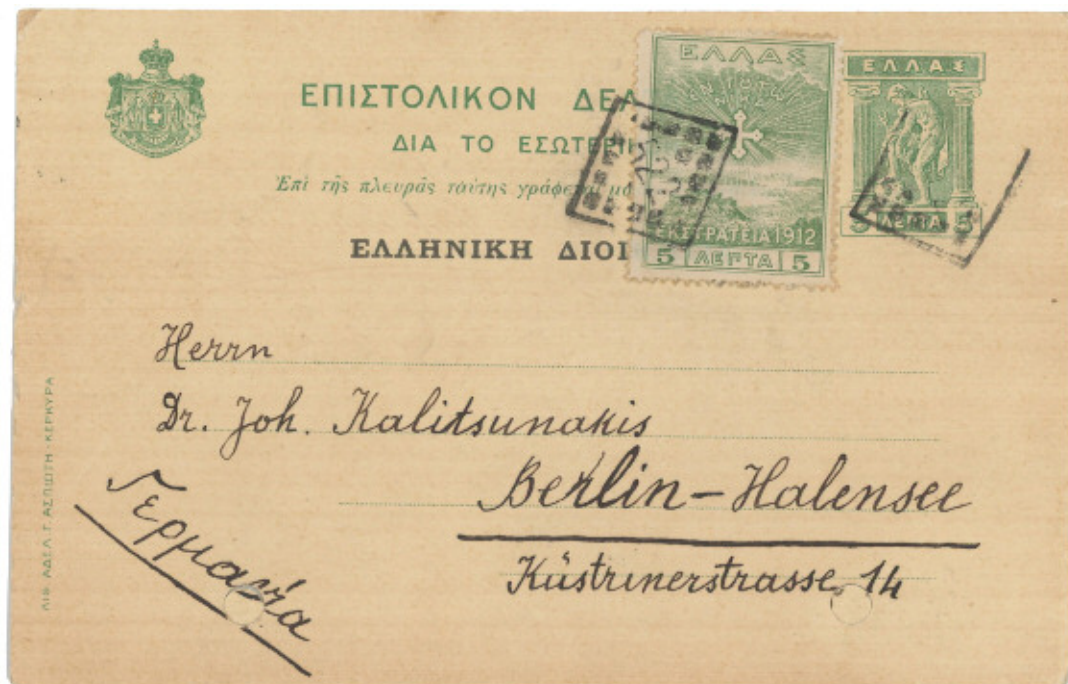 ΕΠΙΣΤΟΛΙΚΟΝ ΔΕΛ
ΔΙΑ ΤΟ ΕΣΩΤΕΡΙΚ
Ἐπὶ τῆς πλευρᾶς ταύτης γράφεται μό
ΕΛΛΗΝΙΚΗ ΔΙΟΙ
ΕΛΛΑΣ
ΕΝ ΤΟΥΤΩ
ΝΙΚΑ
ΕΚΣΤΡΑΤΕΙΑ 1912
5 ΛΕΠΤΑ 5
ΕΛΛΑΣ
5 ΛΕΠΤΑ 5
Herrn
Dr. Joh. Kalitsunakis
Berlin-Halensee
Küstrinerstrasse 14
Γερμανία
ΛΙΘ. ΑΔΕΛ. Γ. ΑΣΠΙΩΤΗ - ΚΕΡΚΥΡΑ